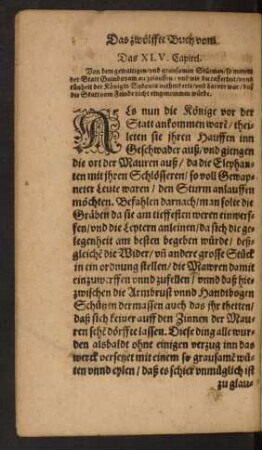 Das zwölffte Buch vom
Das XLV. Capitel.
Von dem gewaltigen vnd grausamen Stürmen / so
der Statt
der Königin
die Statt vom Feinde nicht eingenommen würde.
ALs nun die Könige vor der
Statt ankommen ward / thei-
leten sie ihren Hauffen inn
Geschwader auß / vnd giengen
die ort der Mauren auß / da die Elephan-
ten mit ihren Schlössern / so voll Gewap-
neter Leute waren / den Sturm anlauffen
möchten. Befahlen darnach / man solte die
Gräben da sie am tieffesten weren einwerf-
fen / vnd die Leytern anleinen / da sich die ge-
legenheit am besten begeben würde / deß-
gleichẽ die Wider / vñ andere grosse Stück
in ein ordnung stellen / die Mawren damit
einzuwerffen vnnd zufellen / vnnd daß hie-
zwischen die Armbrust vnnd Handtbogen
Schützen dermassen auch das ihr theten /
daß sich keiner auff den Zinnen der Mau-
ren sehẽ dörffte lassen. Diese ding alle wur-
den alsbaldt ohne einigen verzug inn das
werck versetzet mit einem so grausamẽ wü-
ten vnnd eylen / daß es schier vnmüglich ist
zu glau-